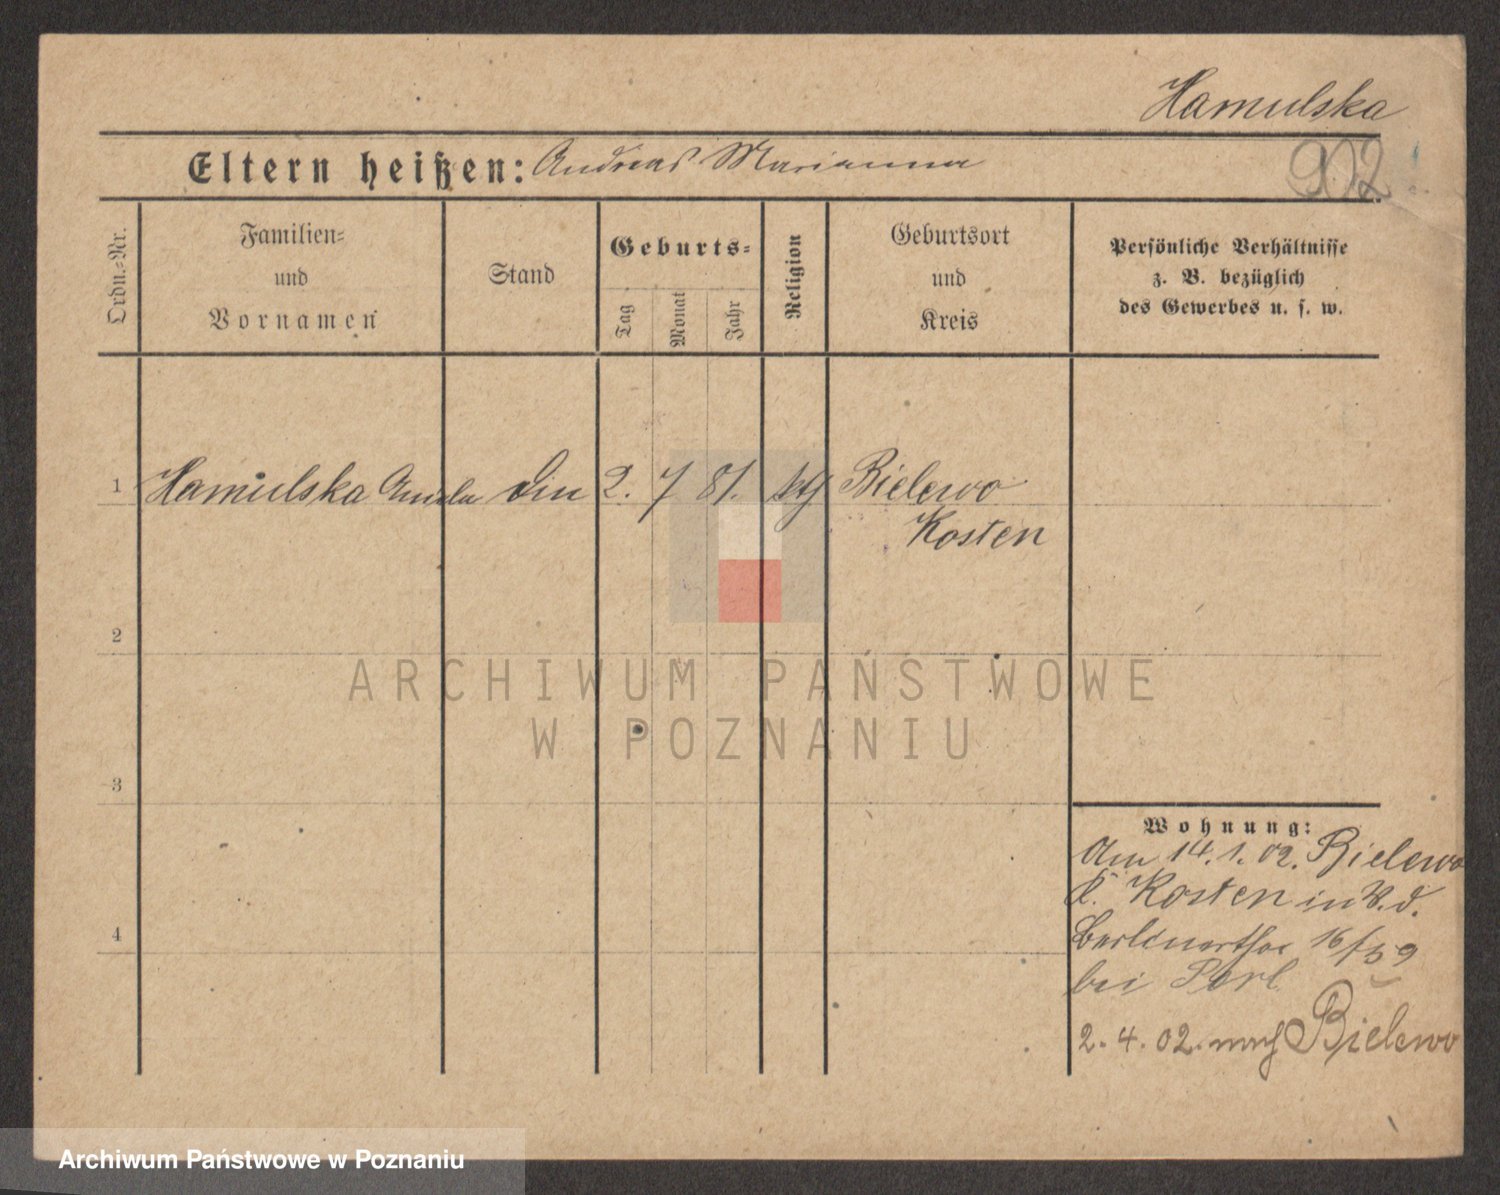 Hamulska
Eltern heißen: Andreas Marianna
902
Ordn.-Nr.
Familien-
und
Vornamen
Stand
Geburts-
Tag
Monat
Jahr
Religion
Geburtsort
und
Kreis
Persönliche Verhältnisse
z. B. bezüglich
des Gewerbes u. s. w.
1 Hamulska Aniela 2. 7 81. Bielewo
Kosten
2
3
4
Wohnung:
Am 14. 1. 02. Bielewo
K. Kosten in
Berlinerthor 16/
bei
2. 4. 02. nach Bielewo
ARCHIWUM PAŃSTWOWE
W POZNANIU
Archiwum Państwowe w Poznaniu